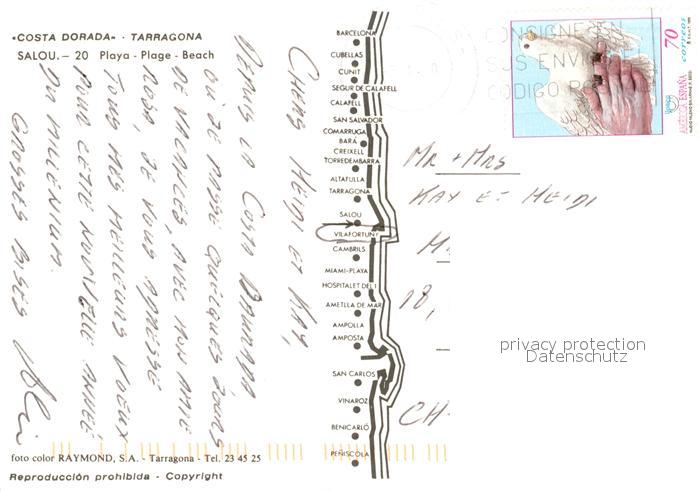 «COSTA DORADA» · TARRAGONA
SALOU. – 20 Playa - Plage - Beach
CHERS HEIDI ET KAY,
DEPUIS LA COSTA DAURADA
OÙ JE PASSE QUELQUES JOURS
DE VACANCES, AVEC MON AMIE
ROSA, JE VOUS ADRESSE
TOUS MES MEILLEURS VOEUX
POUR CETTE NOUVELLE ANNÉE
DU MILLENIUM.
GROSSES BISES
BARCELONA
CUBELLAS
CUNIT
SEGUR DE CALAFELL
CALAFELL
SAN SALVADOR
COMARRUGA
BARÁ
CREIXELL
TORREDEMBARRA
ALTAFULLA
TARRAGONA
SALOU
VILAFORTUNY
CAMBRILS
MIAMI-PLAYA
HOSPITALET DEL I
AMETLLA DE MAR
AMPOLLA
AMPOSTA
SAN CARLOS
VINAROZ
BENICARLÓ
PEÑISCOLA
CONSIGNE EN
SUS ENVIOS
CODIGO PO
70
correos
AMÉRICA ESPAÑA
MR + MRS
KAY ET HEIDI
M.
18,
CH-
privacy protection
Datenschutz
foto color RAYMOND, S.A. - Tarragona - Tel. 23 45 25
Reproducción prohibida - Copyright